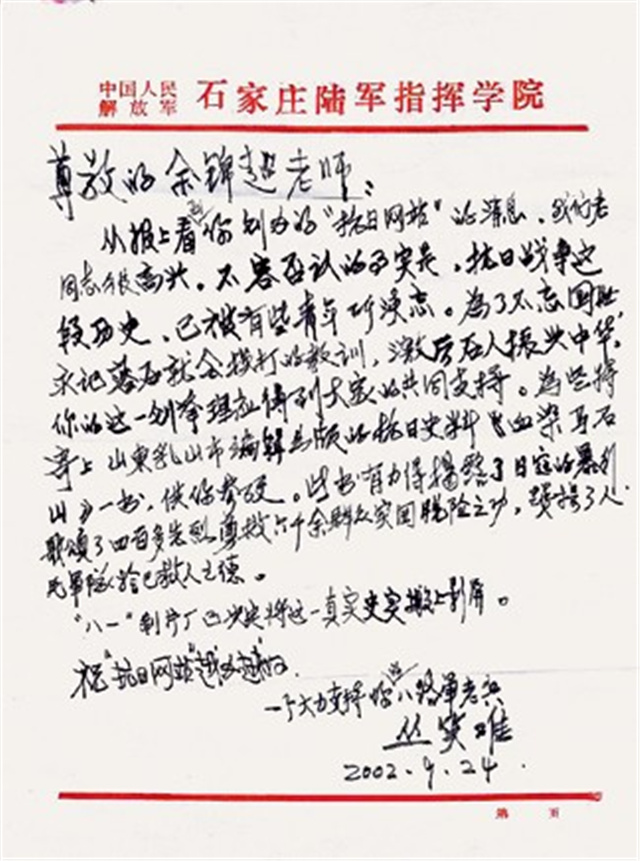 中国人民
解放军 石家庄陆军指挥学院
尊敬的余锦超老师：
从报上看到你创办的“抗日网站”的消息，我们老
同志很高兴。不容否认的事实是，抗日战争这
段历史，已被有些青年所淡忘。为了不忘国耻，
永记落后就会挨打的教训，激励后人振兴中华，
你的这一创举理应得到大家的共同支持。为此特
寄上山东乳山市编辑出版的抗日史料《血染马石
山》一书，供你参改。此书有力得揭露了日寇的暴行，
歌颂了四百多先烈勇救六千余群众突围脱险之
民军队舍己救人之德。
“八一”制片厂已决定将这一真实史实搬上影屏。
祝“抗日网站”越办越好
一个大力支持你的八路军老兵
丛笑难
2002.9.24.
第 页